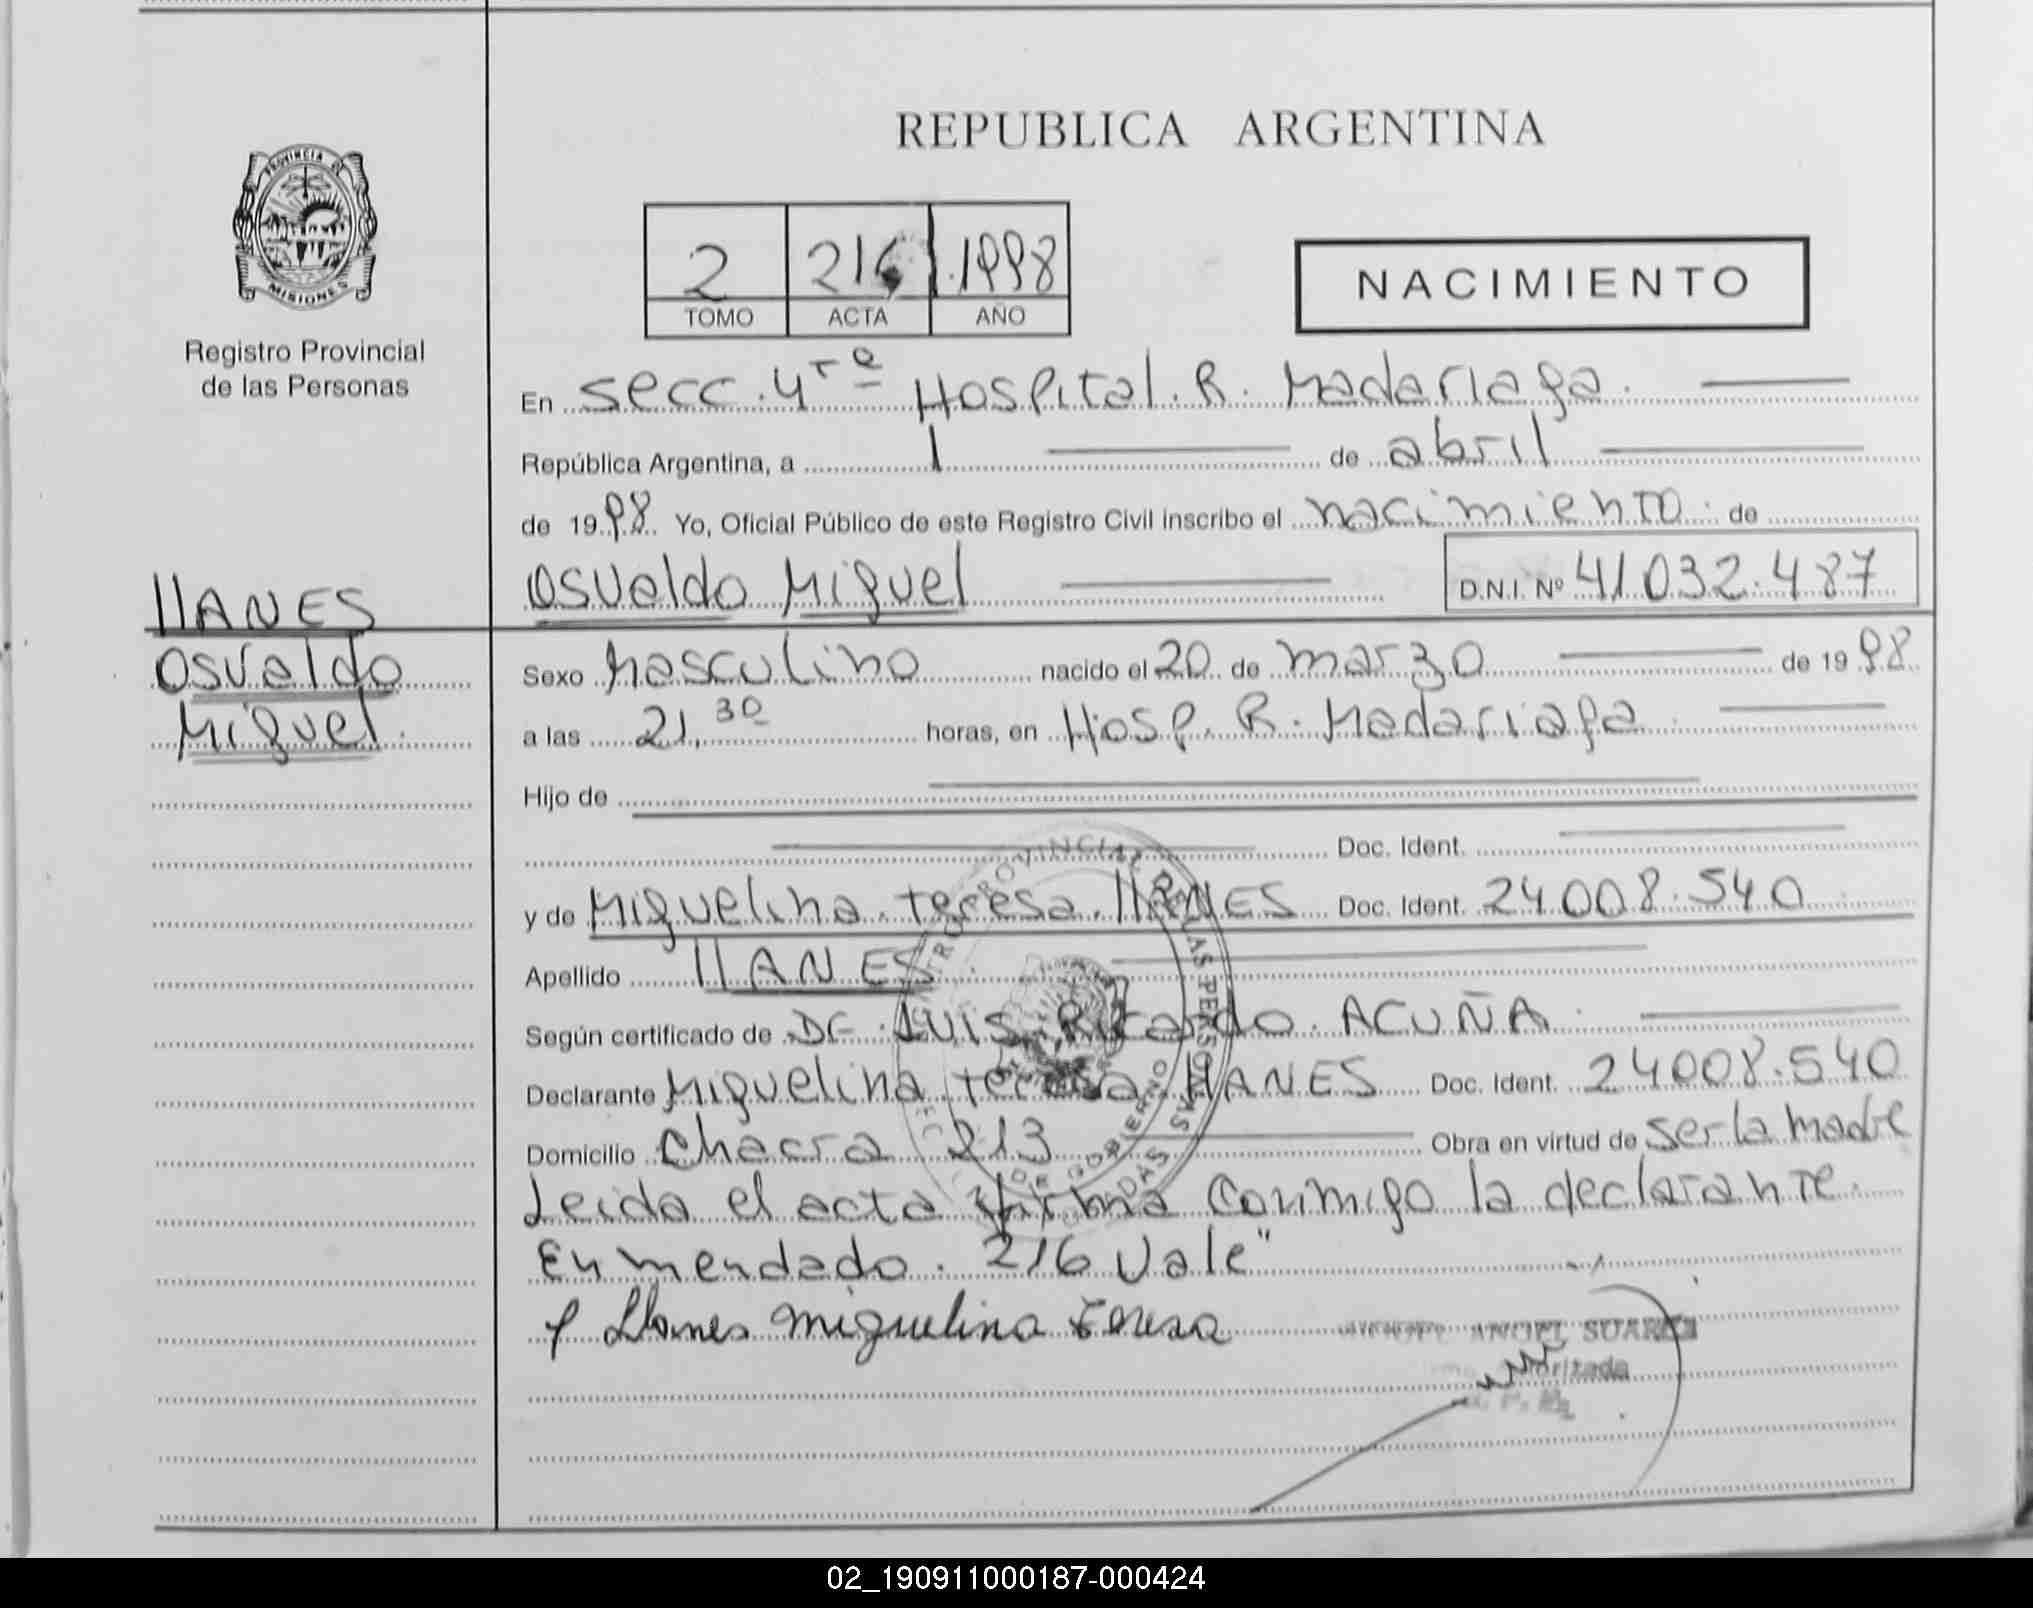 REPUBLICA ARGENTINA
PROVINCIA DE
MISIONES
Registro Provincial
de las Personas
2 216 1998
TOMO ACTA AÑO
NACIMIENTO
En secc. 4ta Hospital. R. Madariaga.
República Argentina, a 1 de abril
de 1998 Yo, Oficial Público de este Registro Civil inscribo el nacimiento de
Osvaldo Miguel D.N.I. Nº 41.032.487
llANES
Osvaldo
Miguel.
Sexo Masculino nacido el 20 de marzo de 1998
a las 21,30 horas, en Hosp. R. Madariaga
Hijo de
Doc. Ident.
y de Miguelina teresa llANES Doc. Ident. 24008.540
Apellido llANES
Según certificado de Dr. Luis Ricardo ACUÑA.
Declarante Miguelina teresa llANES Doc. Ident. 24008.540
Domicilio Chacra 213 Obra en virtud de ser la madre
Leida el acta firma conmigo la declarante.
Enmendado. 216 Vale"
Llanes Miguelina teresa
ANGEL SUAREZ
02_190911000187-000424